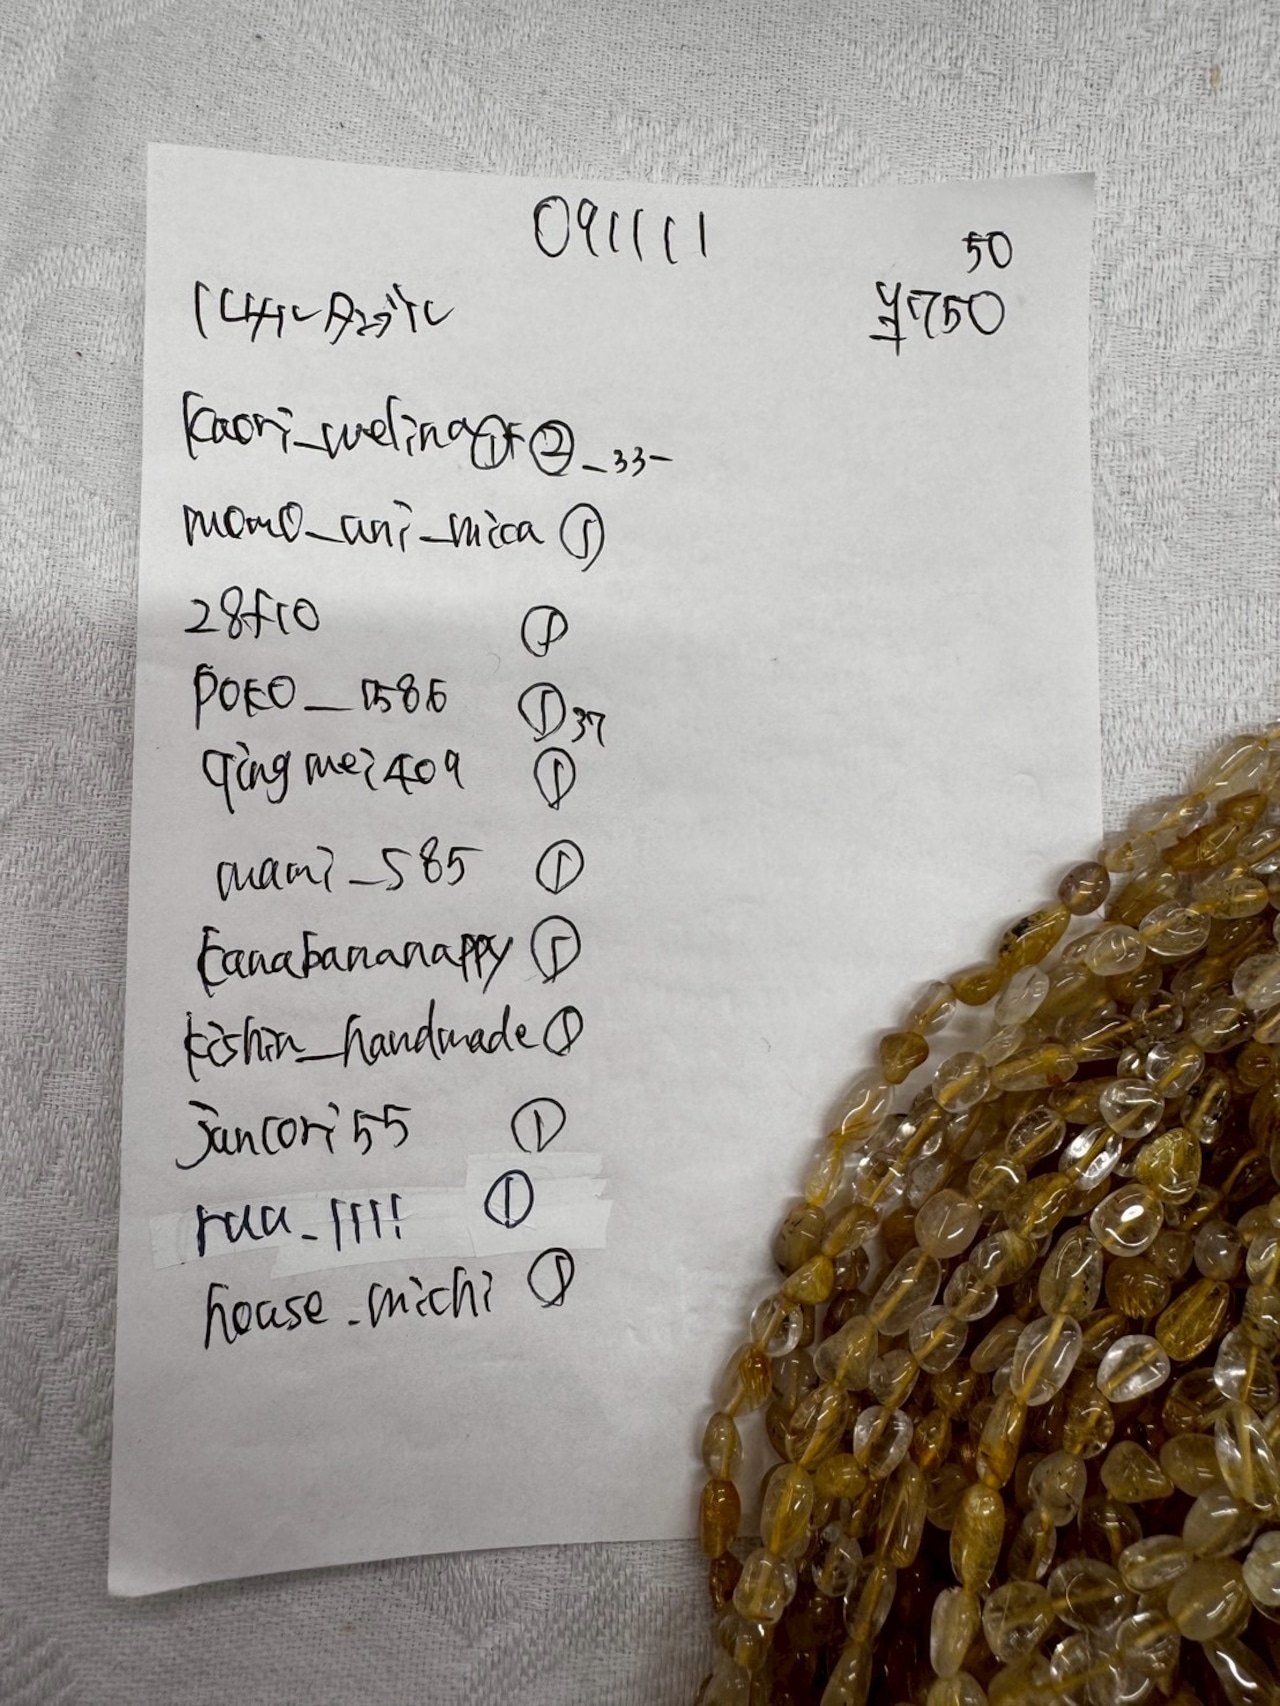 091111
50
¥1750
kaori_welina①+②_33-
momo_ani_mica ①
28f10 ①
poko_1586 ①37
qingmei409 ①
mami_585 ①
kanabananappy ①
kishin_handmade ①
jancori55 ①
ruu_1111 ①
house_michi ①